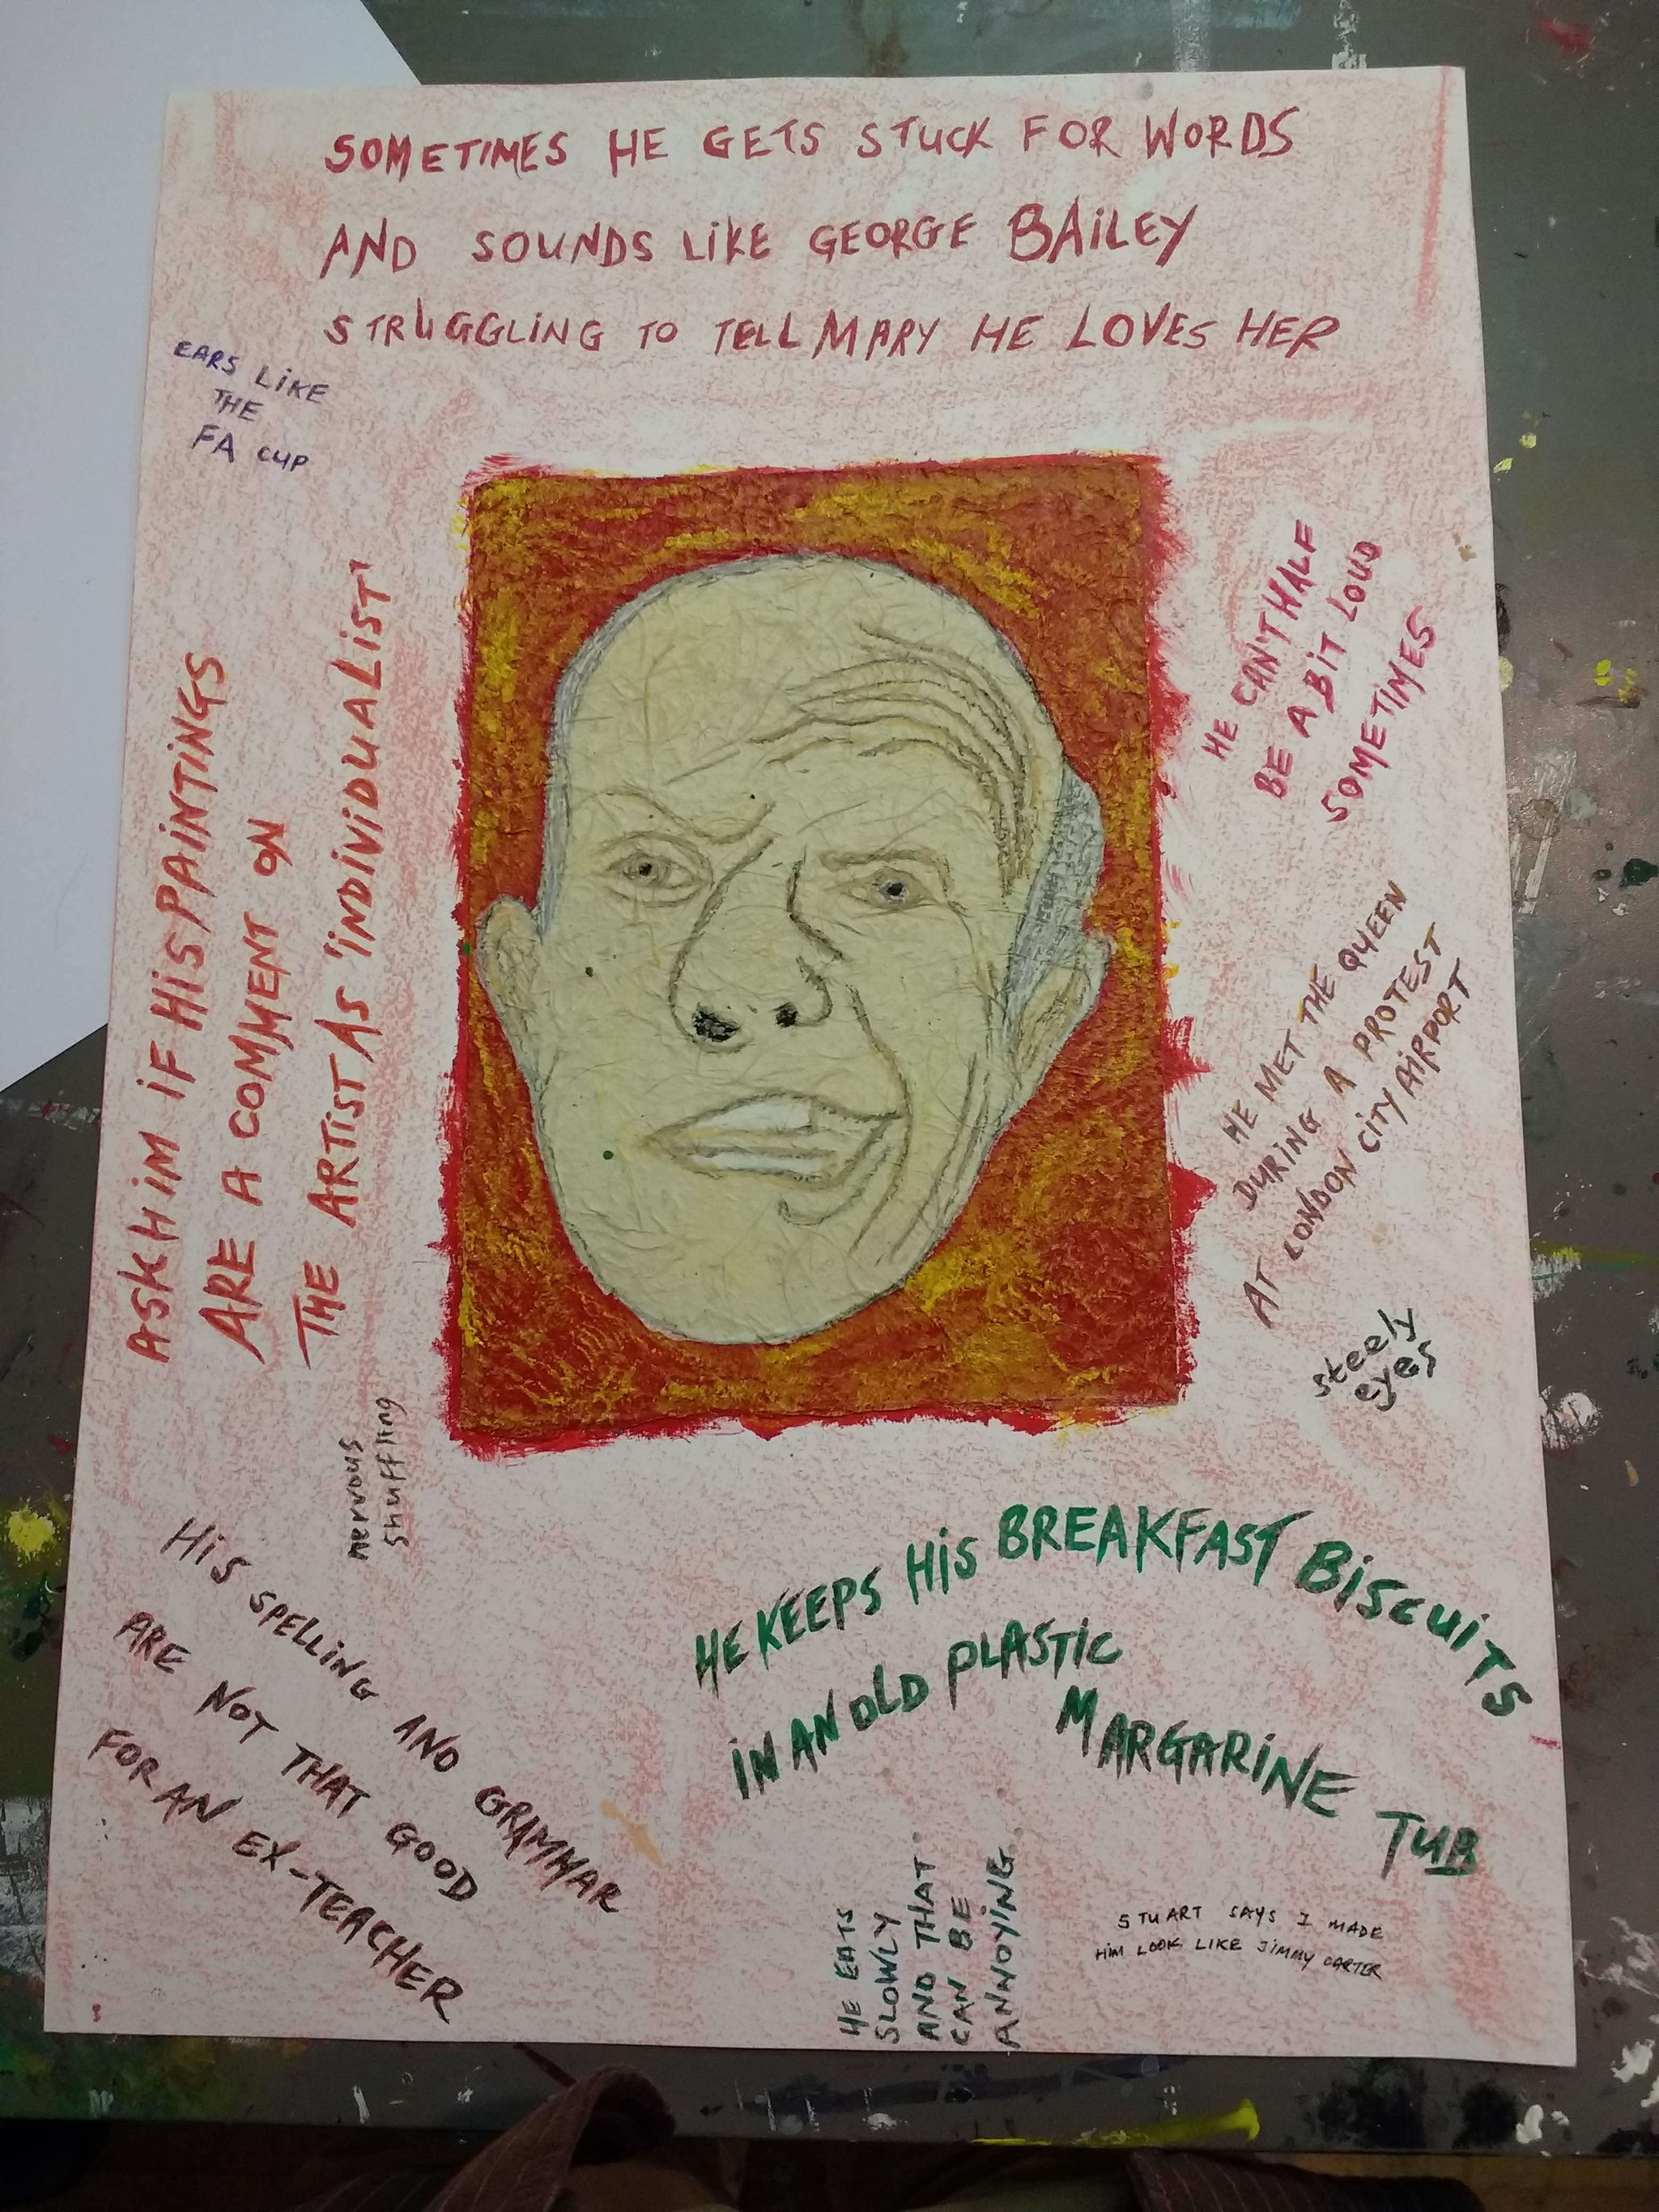 SOMETIMES HE GETS STUCK FOR WORDS
AND SOUNDS LIKE GEORGE BAILEY
STRUGGLING TO TELL MARY HE LOVES HER
EARS LIKE
THE
FA CUP
ASK HIM IF HIS PAINTINGS
ARE A COMMENT ON
THE ARTIST AS 'INDIVIDUALIST'
HE CAN'T HALF
BE A BIT LOUD
SOMETIMES
HE MET THE QUEEN
DURING A PROTEST
AT LONDON CITY AIRPORT
steely
eyes
nervous
shuffling
HIS SPELLING AND GRAMMAR
ARE NOT THAT GOOD
FOR AN EX-TEACHER
HE KEEPS HIS BREAKFAST BISCUITS
IN AN OLD PLASTIC
MARGARINE TUB
HE EATS
SLOWLY
AND THAT
CAN BE
ANNOYING
STUART SAYS I MADE
HIM LOOK LIKE JIMMY CARTER